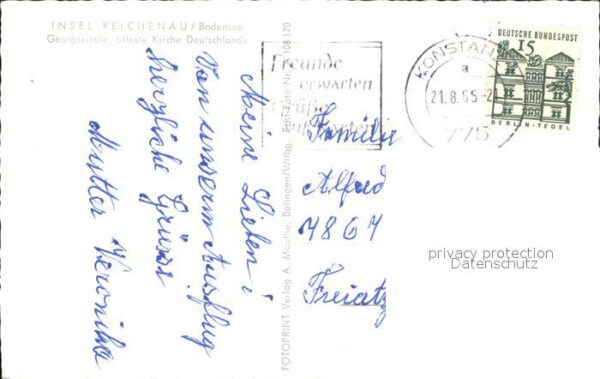 INSEL REICHENAU/Bodensee
Georgskirche, älteste Kirche Deutschlands
Meine Lieben!
Von unserm Ausflug
herzliche Grüsse
Mutter Veronika
FOTOPRINT Verlag A. Mauthe, Dotingen/Wttbg. Echt Foto Nr. 108 170
Freunde
erwarten
Grüße
KONSTANZ
a
21.8.65-2
775
DEUTSCHE BUNDESPOST
15
BERLIN-TEGEL
Familie
Alfred
7867
privacy protection
Datenschutz